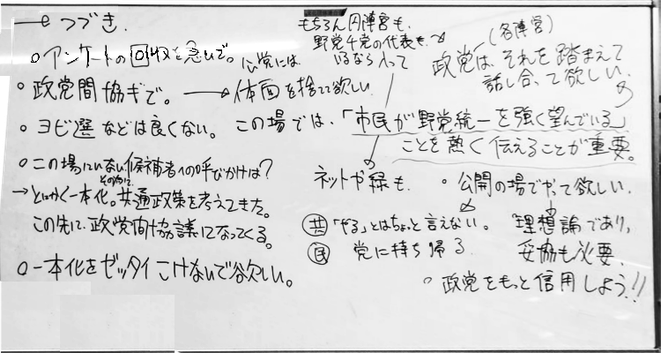 → つづき.
○アンケートの回収を急いで。
○政党間協ギで。→ 体面を捨てて欲しい
心党には
○ヨビ選などは良くない。
○この場にいない候補者への呼びかけは?
→とにかく一本化。共通政策を考えてきた。
その為に
この先に政党間協議になってくる。
○一本化をゼッタイこわさないで欲しい。
もちろん円陣営も.
野党4党の代表も
いるなら入って
(各陣営)
政党は、それを踏まえて
話し合って欲しい.
この場では、「市民が野党統一を強く望んでいる」
ことを熱く伝えることが重要。
ネットや緑も.
○公開の場でやって欲しい.
共 「やる」とはちょっと言えない。
民 党に持ち帰る
理想論であり、
妥協も必要.
○政党をもっと信用しよう!!